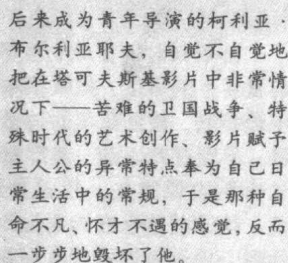 后来成为青年导演的柯利亚·
布尔利亚耶夫，自觉不自觉地
把在塔可夫斯基影片中非常情
况下——苦难的卫国战争、特
殊时代的艺术创作、影片赋予
主人公的异常特点奉为自己日
常生活中的常规，于是那种自
命不凡、怀才不遇的感觉，反而
一步步地毁坏了他。